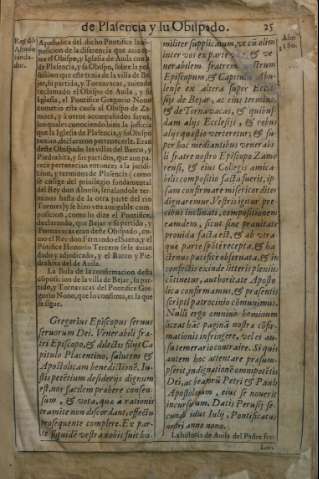 de Plasencia y su Obispado. 25
Apostolica del dicho Pontifice la
posicion de la diferencia que
tre el Obispo, y Iglesia de Auila con la
de Plasencia, y su Obispo, sobre la
que este tenia de la villa de
jar, su partida, y Tornauacas,
reclamado el Obispo de Auila, y su
Iglesia, el Pontifice Gregorio Nono
cometio esta causa al Obispo de Za-
mora, y a otros acompañados
los quales conociendo
que la Iglesia de Plasencia, y su Obispo
declararon pertenecerle. Eran
deste Obispado las villas del Barco, y
Piedrahita, y sus partidos, que
rece pertenecian entonces a la jurisdi-
cion, y terminos de Plasencia (como
se colige del priuilegio fundamental
del Rey don Alonso, señalandole ter-
minos hasta de la otra parte del rio
Tormes) y se hizo vna amigable com-
posicion, como lo dize el Pontifice,
declarando, que Bejar y su partido, y
Tornauacas eran deste Obispado,
mo el Rey don Fernando el Santo, y el
Pontifice Honorio Tercero se la auian
dado y adjudicado, y el Barco y Pie-
drahita del de Auila.
La Bula de la confirmacion desta
cõposicion de la villa de Bejar, su par-
tido, y Tornauacas del Pontifice Gre-
gorio Nono, que lo confirma, es la que
se sigue.
Gregorius Episcopus seruus
seruorum Dei. Venerabili fra-
tri Episcopo, & dilectis filijs Ca
pitulo Placentino, salutem &
Apostolicam benedictionẽ. Iu-
stis petentium desiderijs dignum
est, nos facilem præbere consen-
sum, & vota, quæ à rationis
tramite non discordant, effectu
prosequente complere. Ex par-
te siquidẽ vestra nobis fuit hu-
militer supplicatum, vt cũ olim
inter vos ex parte & ve
nerabilem fratrem nostrum
Episcopum, & Capitulũ Abu-
lense ex altera super Eccle
sijs de Bejar, ac eius termino,
& de Tornauacas, & quibus-
dam alijs Ecclesijs, & rebus
alijs quæstio verteretur; & su-
per hoc mediantibus venerabi-
li fratre nostro Episcopo Zamo
rensi, & eius Collegis amica-
bilis compositio facta fuerit, ip-
sam confirmare misericorditer
dignaremur. Vestris igitur pre-
cibus inclinati, compositionem
eamdem, sicut sine prauitate
prouida facta est, & ab vtra-
que parte spõte recepta, & ha
ctenus pacifice obseruata, & in
confectis exinde litteris plenius
cõtinetur, authoritate Aposto-
lica confirmamus, & præsentis
scripti patrocinio cõmunimus.
Nulli ergo omnino hominum
liceat hãc paginã nostræ cõfir-
mationis infringere, vel ei au-
su temerario contraire. Si quis
autem hoc attentare præsum-
pserit, indignationẽ omnipotẽtis
Dei, ac beatorũ Petri & Pauli
Apostolorum, eius se nouerit
incursurum. Datis Perusij se-
cundo idus Iulij, Pontificatus
nostri anno nono.
La Iglesia de Auila del Padre fray